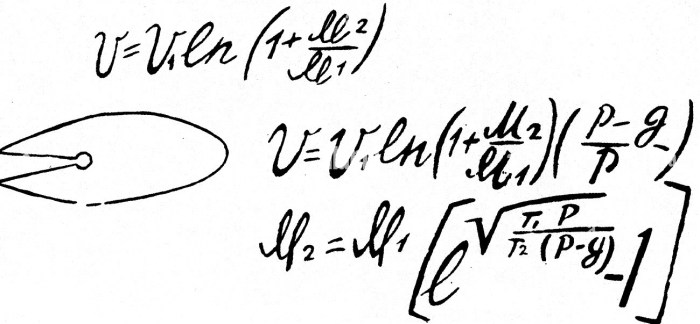 V=V₁ln(1+M₂/M₁)
V=V₁ln(1+M₂/M₁)(P-g/P)
M₂=M₁[e^√(T₁ P/T₂ (P-g)) -1]